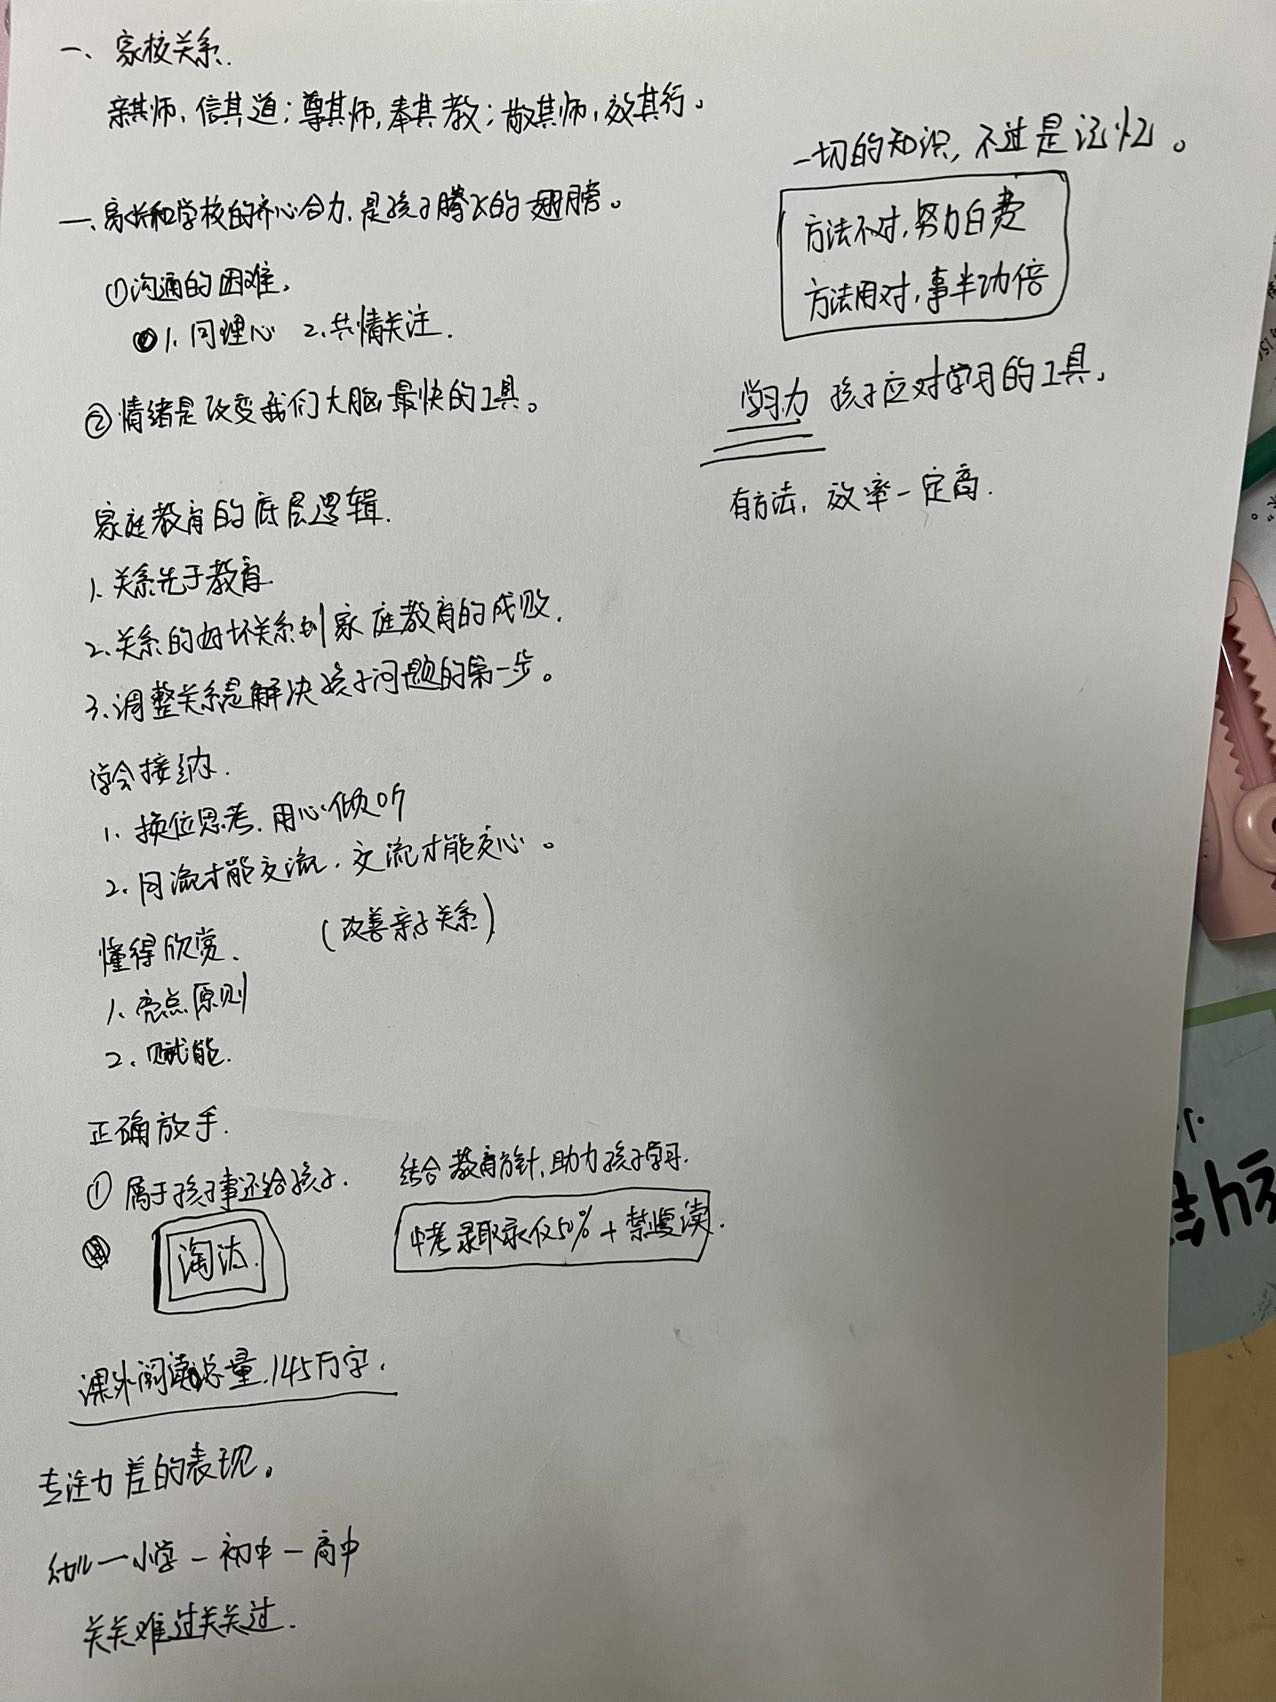 一、家校关系.
亲其师,信其道;尊其师,奉其教;敬其师,效其行。
一、家长和学校的齐心合力,是孩子腾飞的翅膀。
①沟通的困难,
1.同理心 2.共情关注.
②情绪是改变我们大脑最快的工具。
家庭教育的底层逻辑.
1.关系先于教育
2.关系的好坏关系到家庭教育的成败.
3.调整关系是解决孩子问题的第一步。
学会接纳.
1.换位思考.用心倾听
2.同流才能交流,交流才能交心。
懂得欣赏. (改善亲子关系)
1.亮点原则
2.赋能.
正确放手.
①属于孩子事还给孩子.
淘汰.
结合教育方针,助力孩子学习.
中考录取率仅50%+禁复读.
课外阅读总量.145万字.
专注力差的表现。
幼儿一小学一初中一高中
关关难过关关过.
一切的知识,不过是记忆。
方法不对,努力白费
方法用对,事半功倍
学习力 孩子应对学习的工具.
有方法,效率一定高.